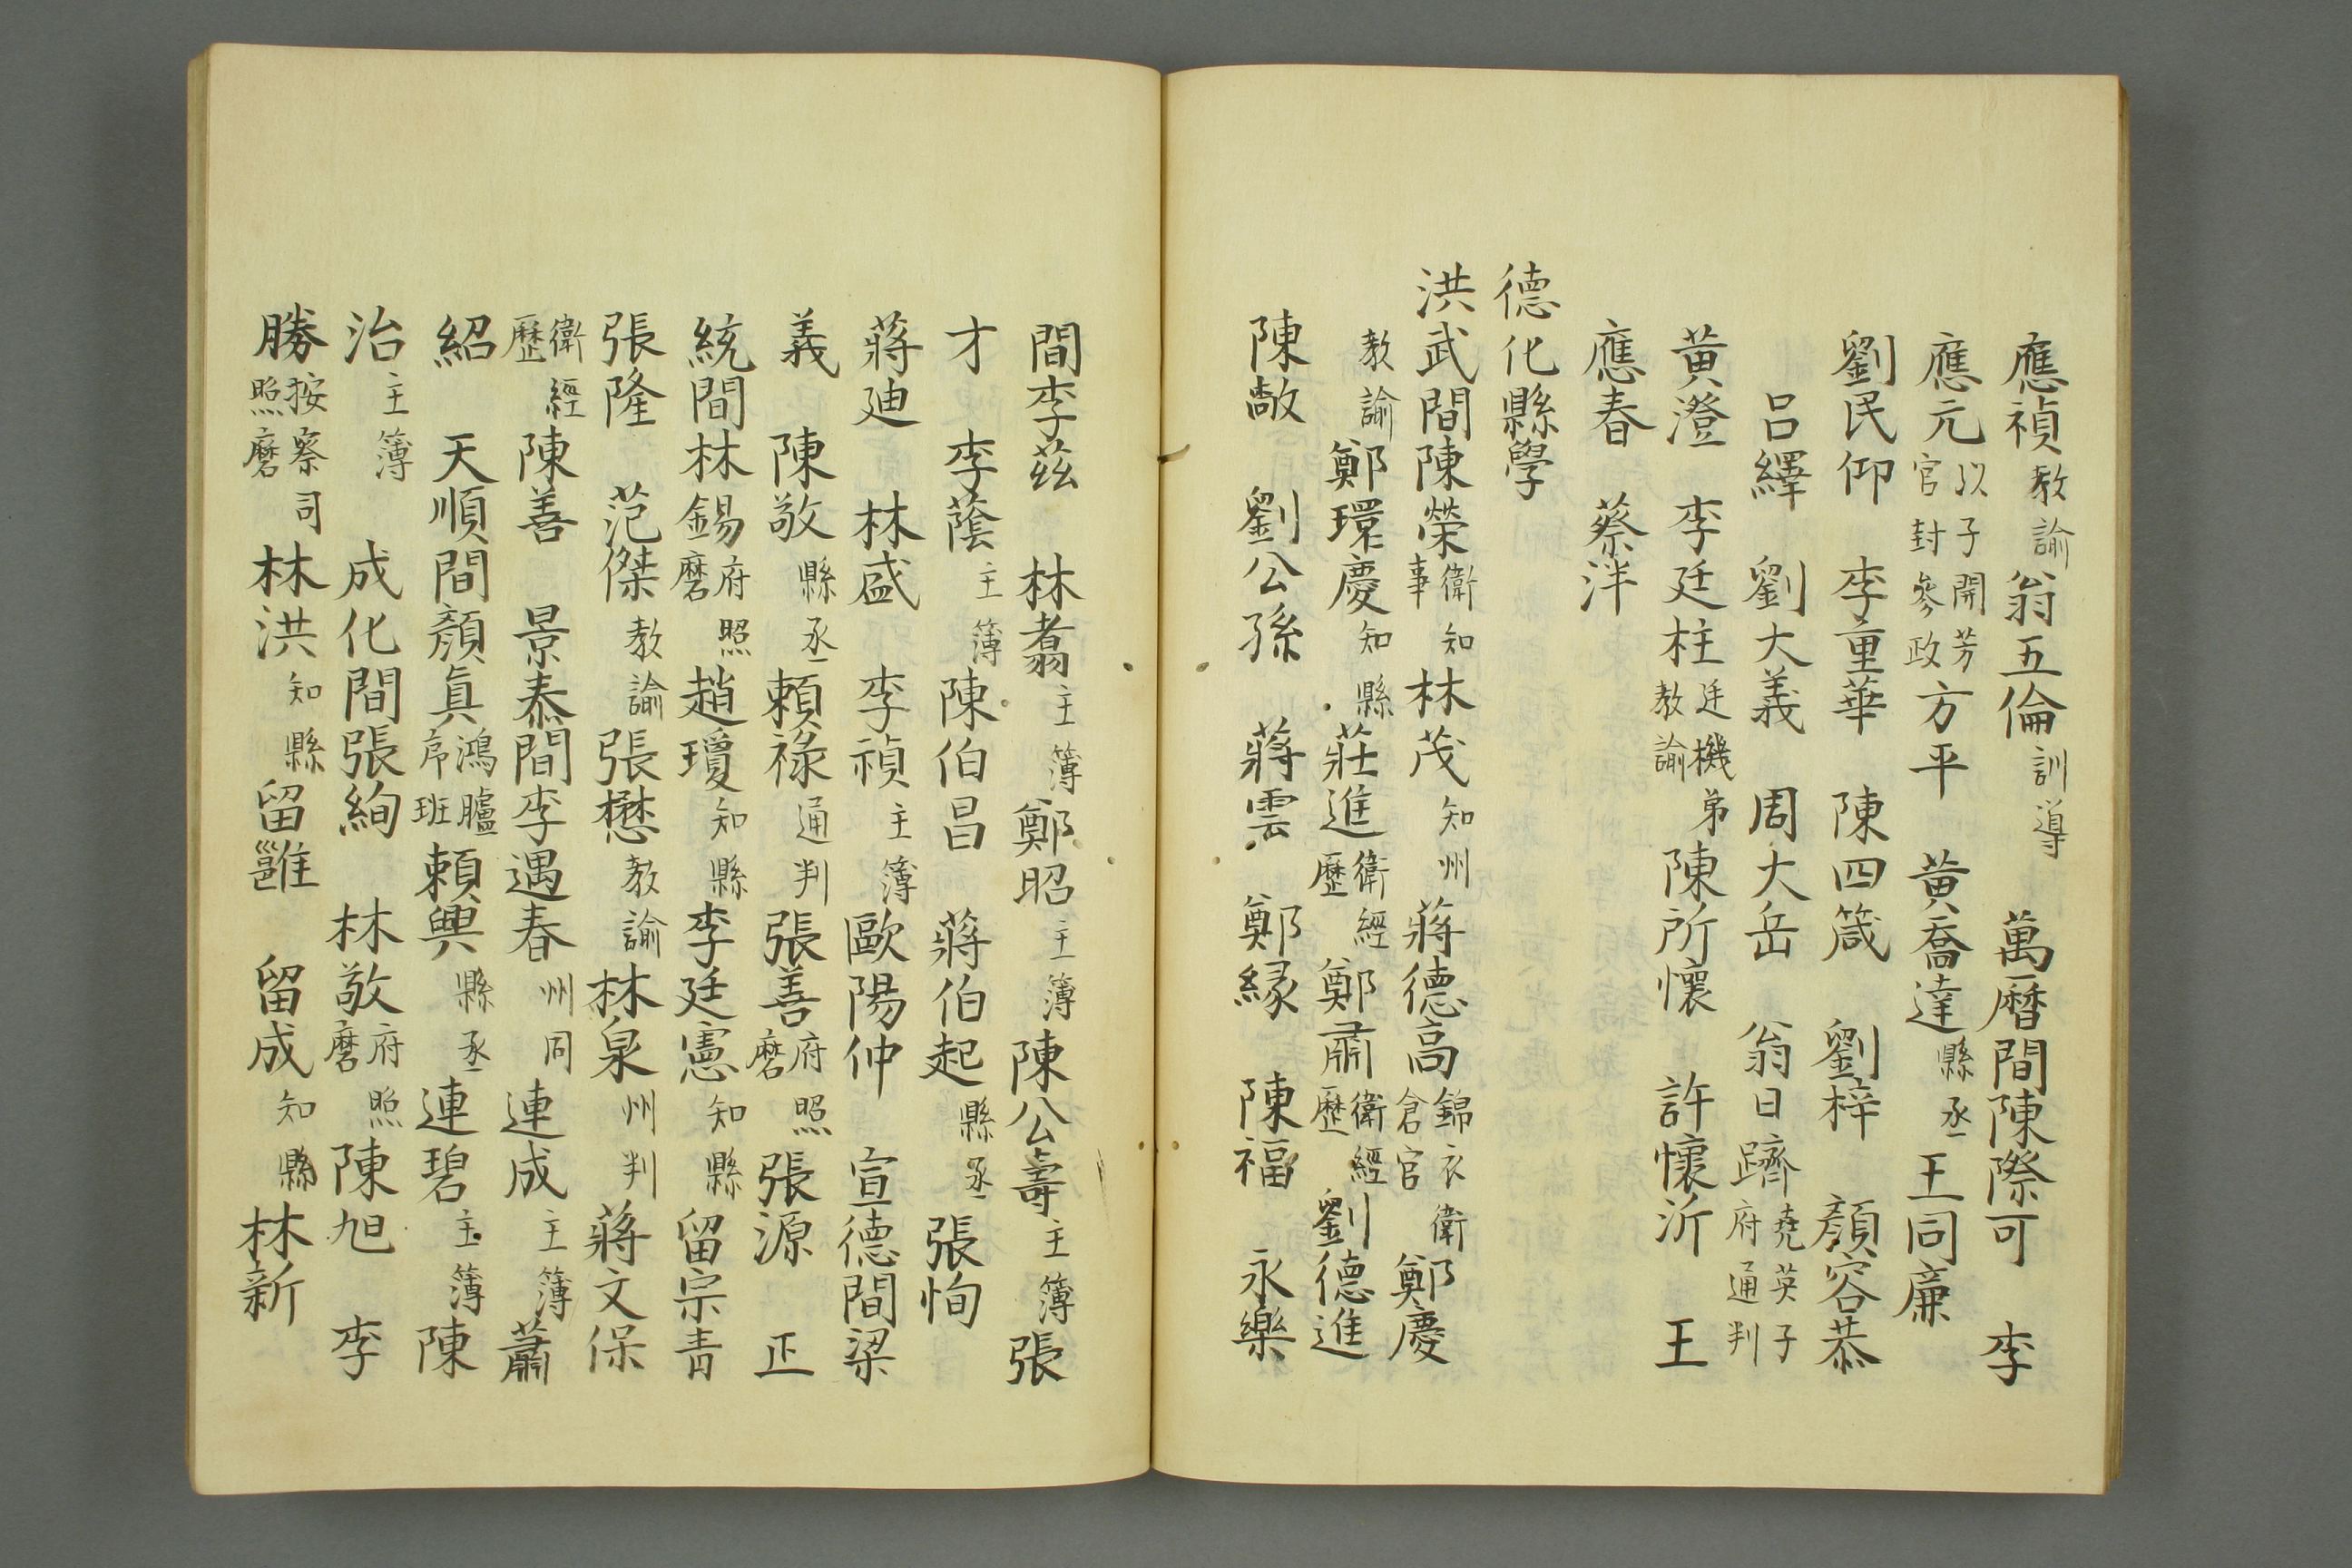 應禎教諭翁五倫訓導　萬曆間陳際可　李
應元以子開芳官封參政方平　黃喬達縣丞王同廉
劉民仰　李重華　陳四箴　劉梓　顏容恭
呂繹　劉大義　周大岳　翁日躋堯英子府通判
黃澄　李廷柱廷機弟教諭陳所懷　許懷沂　王
應春　蔡泮
德化縣學
洪武間陳榮衛知事林茂知州蔣德高錦衣衛倉官鄭慶
教諭鄭環慶知縣莊進衛經歷鄭肅衛經歷劉德進
陳敿　劉公孫　蔣雲　鄭緣　陳福　永樂
間李茲　林翥主簿鄭昭主簿陳公壽主簿張
才　李蔭主簿陳伯昌　蔣伯起縣丞張恂
蔣廸　林盛　李禎主簿歐陽仲　宣德間梁
義　陳敬縣丞賴祿通判張善府照磨張源　正
統間林錫府照磨趙瓊知縣李廷憲知縣留宗青
張隆　范傑教諭張懋教諭林泉州判蔣文保
衛經歷陳善　景泰間李遇春州同連成主簿蕭
紹　天順間顏眞鴻臚序班賴興縣丞連碧主簿陳
治主簿　成化間張絢　林敬府照磨陳旭　李
勝按察司照磨林洪知縣留雝　留成知縣林新